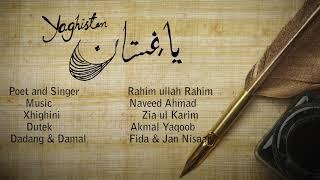 Yaghistan
یاغستان
Poet and Singer Rahim ullah Rahim
Music Naveed Ahmad
Xhighini Zia ul Karim
Dutek Akmal Yaqoob
Dadang & Damal Fida & Jan Nisaar